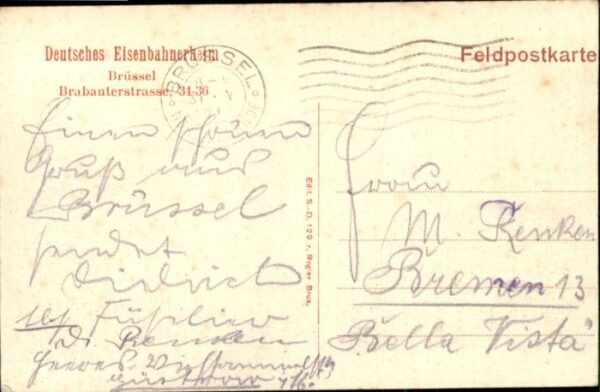 Deutsches Eisenbahnerheim
Brüssel
Brabanterstrasse, 34-36
BRÜSSEL
Feldpostkarte
Einen schönen
Gruß aus
Brüssel
sendet
Didrich
Füsilier
D. Renken
Edit. S.-D. 129 r. Rogier Brux.
Frau
M. Renken
Bremen 13
Bella Vista